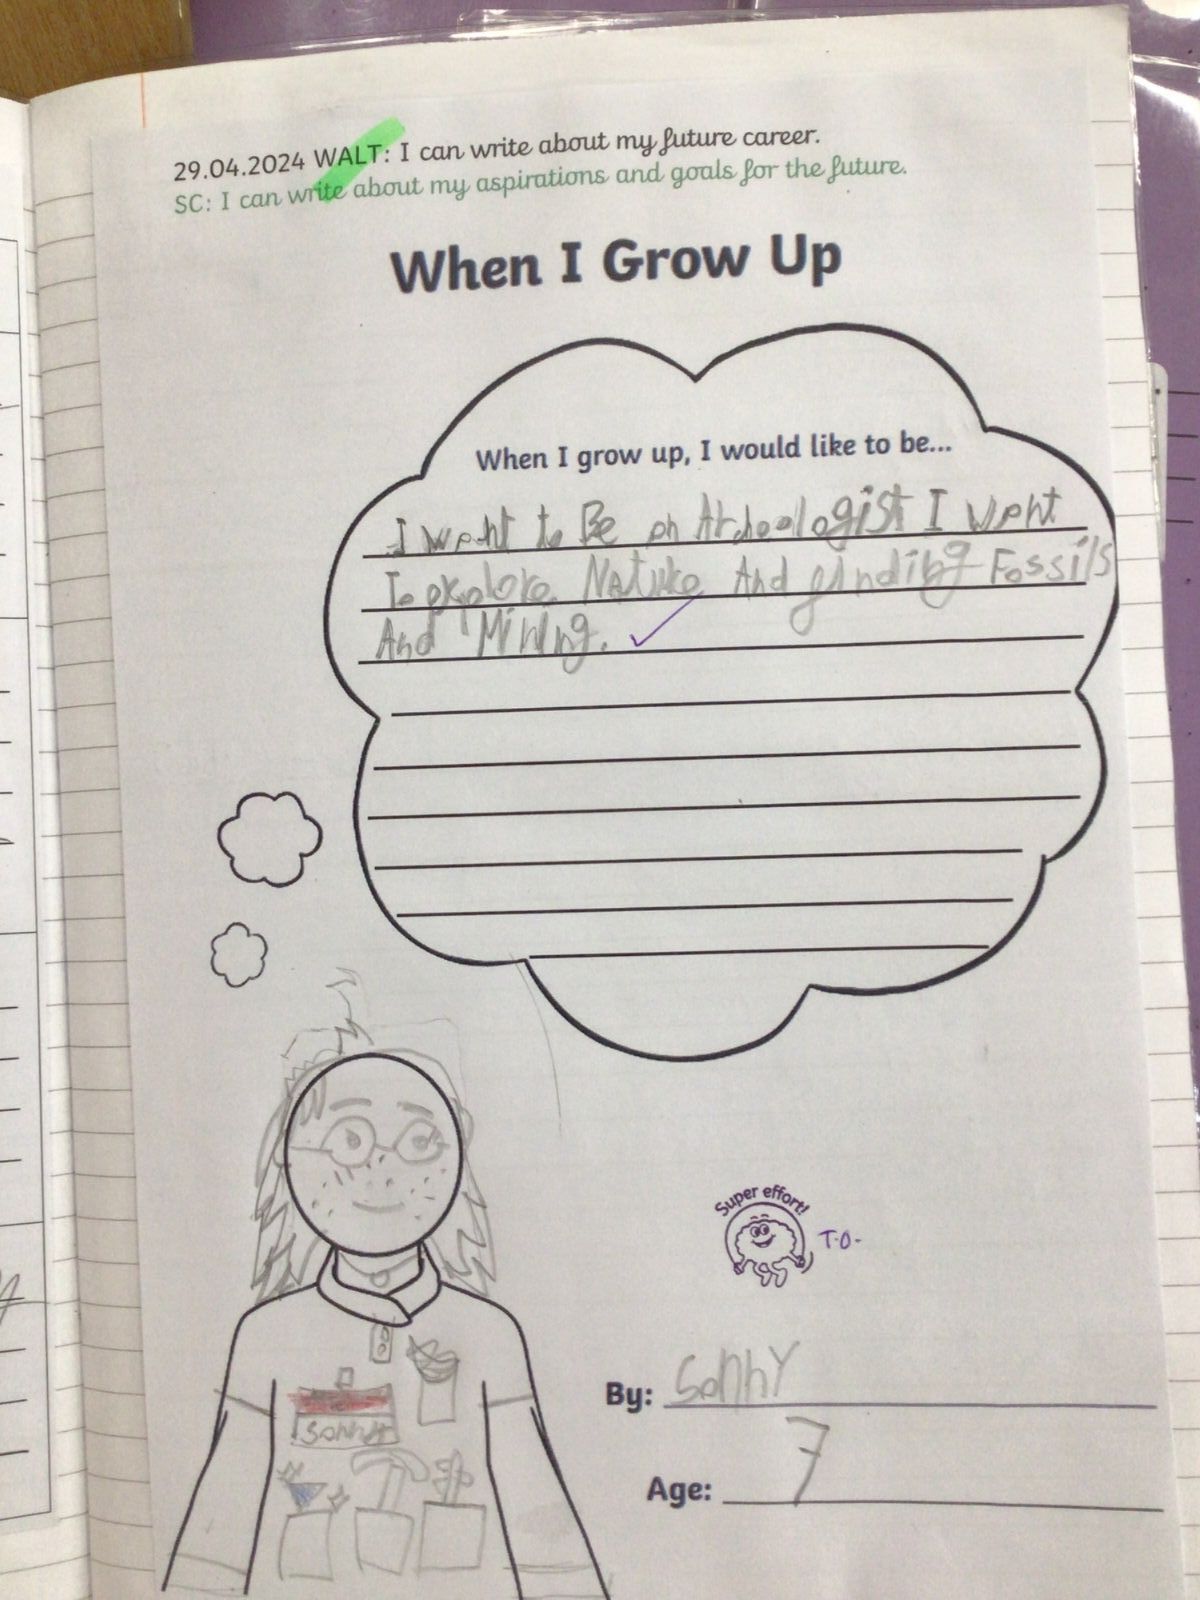 29.04.2024 WALT: I can write about my future career.
SC: I can write about my aspirations and goals for the future.
When I Grow Up
When I grow up, I would like to be...
I want to Be an Archeologist I want
To explore Nature And finding Fossils
And Mining.
Super effort!
T.O.
By: Sonny
Age: 7
Sonny